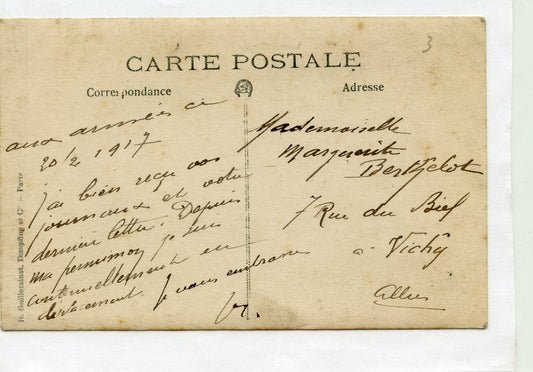 3
CARTE POSTALE
Correspondance
Adresse
aux armées ce
20/2 1917
j'ai bien reçu vos
journaux et votre
dernière lettre. Depuis
ma permission je suis
continuellement en
déplacement. Je vous embrasse
Mademoiselle
Marguerite
Berthelot
7 Rue du Bief
à Vichy
Allier
R. Guilleminot, Bœspflug et Cie — Paris